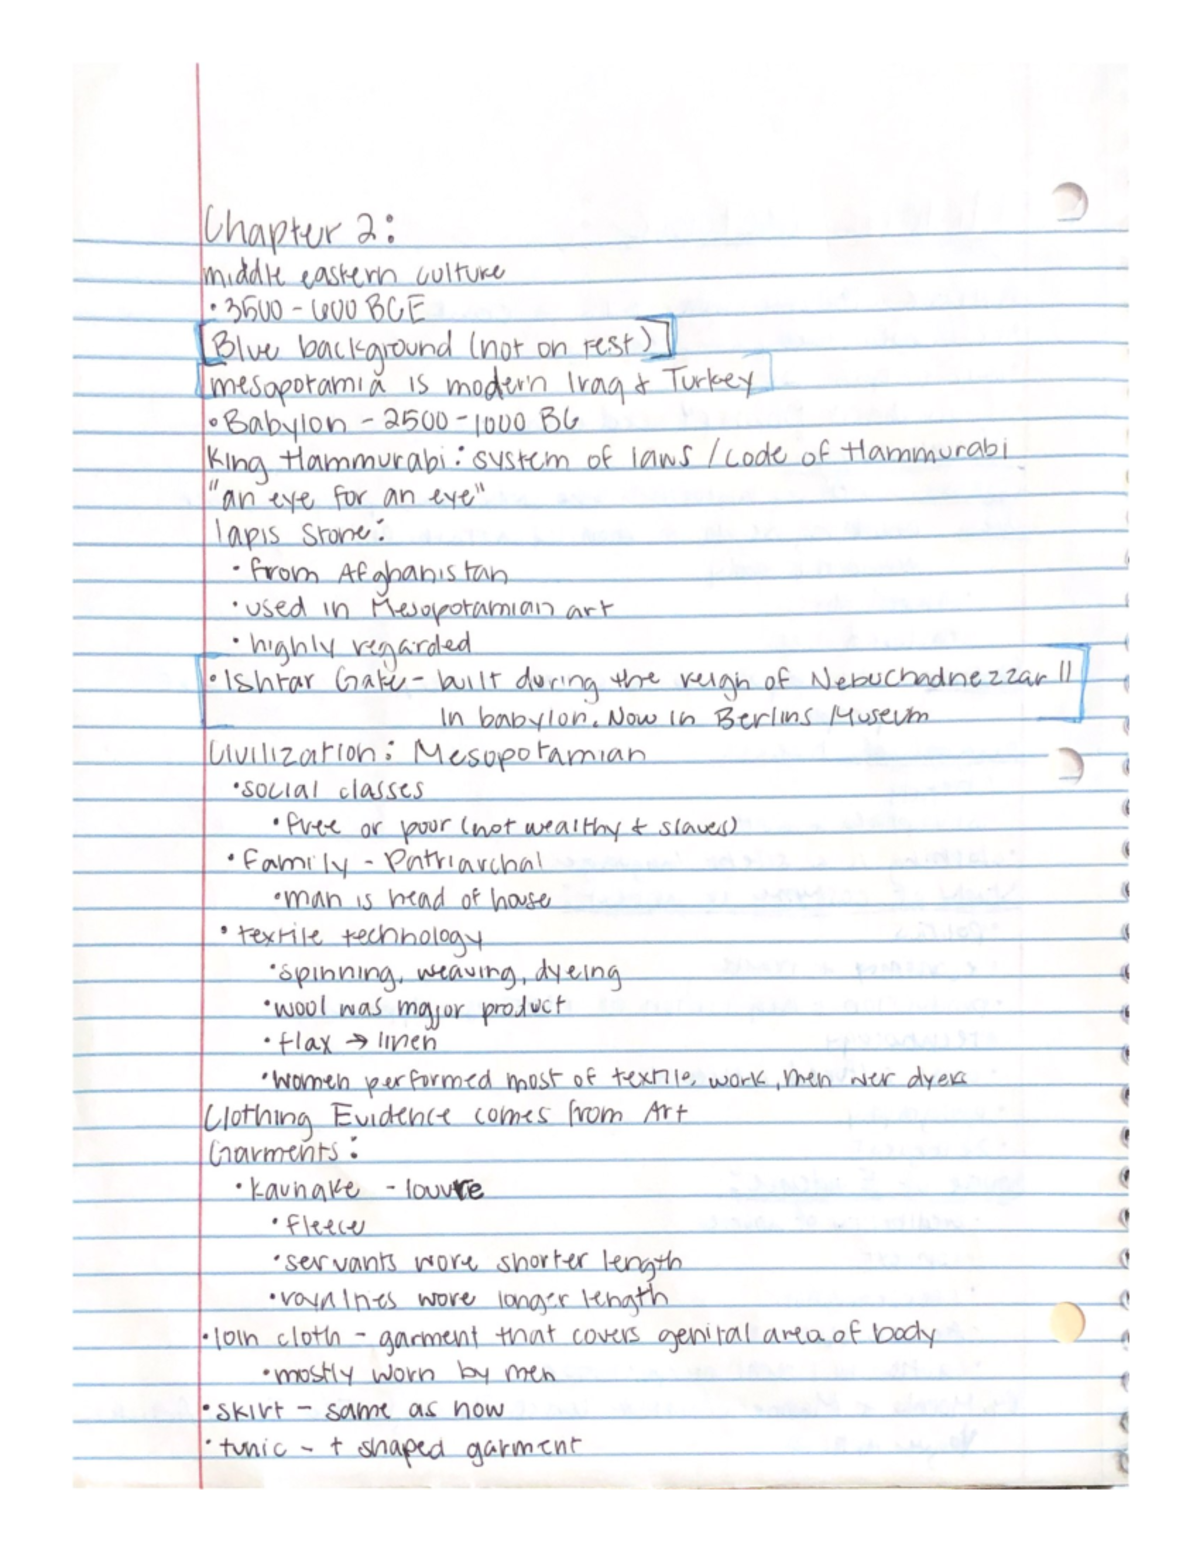 Chapter 2:
middle eastern culture
• 3500 - 600 BCE
[Blue background (not on test)]
mesopotamia is modern Iraq & Turkey
• Babylon - 2500 - 1000 BC
King Hammurabi: system of laws / code of Hammurabi
"an eye for an eye"
lapis Stone:
• from Afghanistan
• used in Mesopotamian art
• highly regarded
• Ishtar Gate - built during the reign of Nebuchadnezzar II
In babylon. Now in Berlins Museum
Civilization: Mesopotamian
• social classes
• free or poor (not wealthy & slaves)
• Family - Patriarchal
• man is head of house
• textile technology
• spinning, weaving, dyeing
• wool was major product
• flax → linen
• women performed most of textile, work, men wer dyers
Clothing Evidence comes from Art
Garments:
• kaunake - louvre
• fleece
• servants wore shorter length
• royalties wore longer length
• loin cloth - garment that covers genital area of body
• mostly worn by men
• skirt - same as now
• tunic - t shaped garment